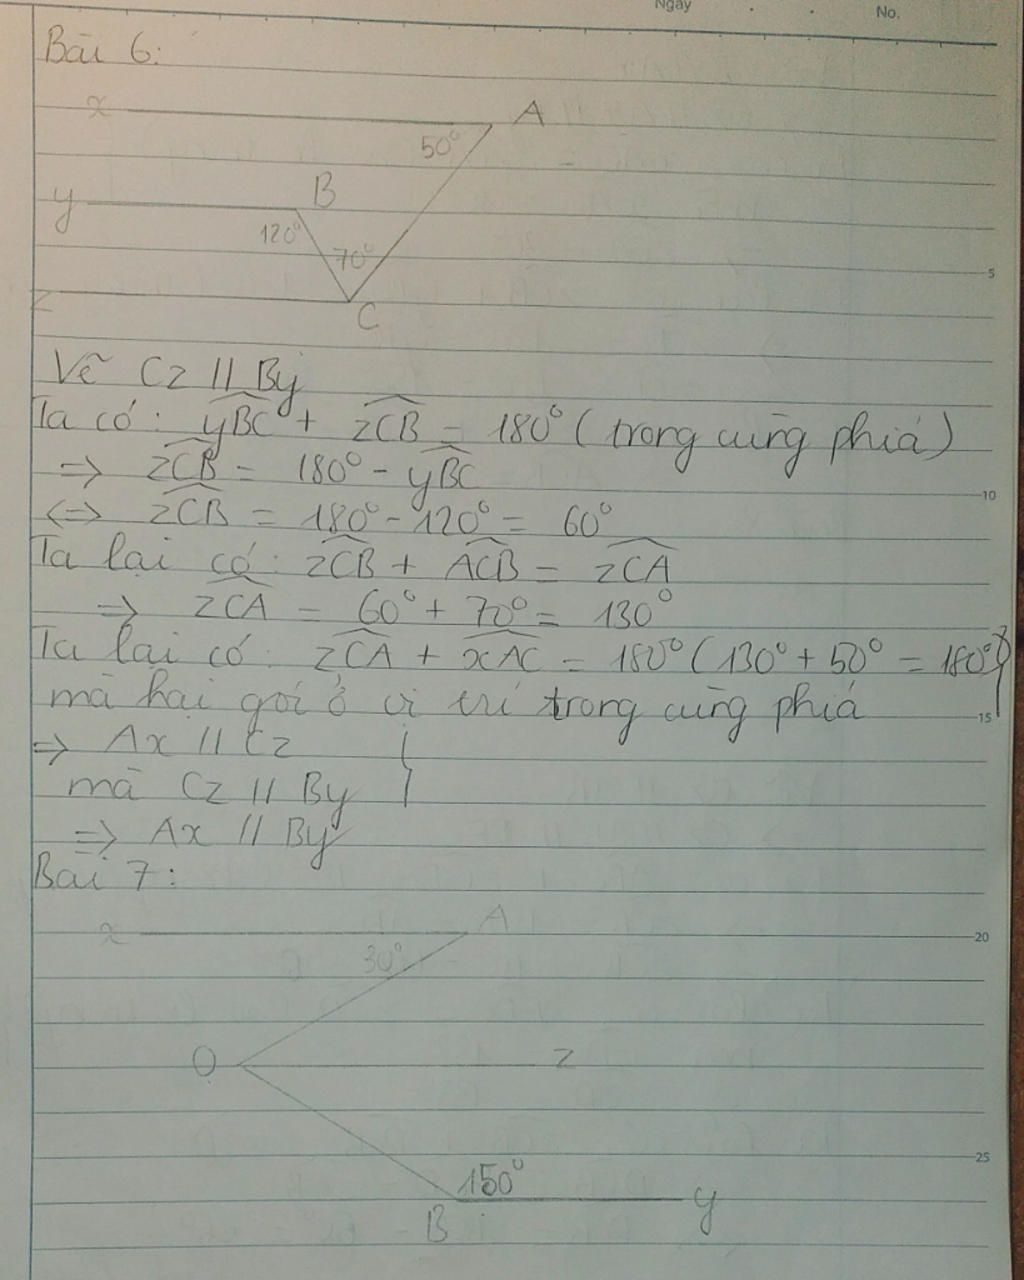 Ngày . . No.
Bài 6:
x A
50°
y B
120° 70°
5
z C
Vẽ Cz // By
Ta có: yBC + zCB = 180° (trong cùng phía)
=> zCB = 180° - yBC
10
<=> zCB = 180° - 120° = 60°
Ta lại có: zCB + ACB = zCA
=> zCA = 60° + 70° = 130°
Ta lại có: zCA + xAC = 180° (130° + 50° = 180°)
mà hai gói ở vị trí trong cùng phía
15
=> Ax // Cz
mà Cz // By
=> Ax // By
Bài 7:
x A
20
30°
O z
25
150°
B y